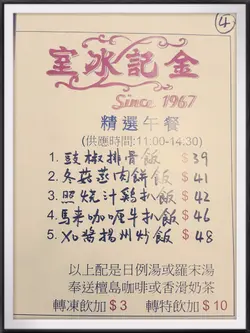 ④
室冰記金
Since 1967
精選午餐
(供應時間:11:00-14:30)
1. 豉椒排骨飯 $39
2. 冬菇蒸肉餅飯 $41
3. 照燒汁鷄扒飯 $42
4. 馬來咖喱牛扒飯 $46
5. XO醬揚州炒飯 $48
以上配是日例湯或羅宋湯
奉送檀島咖啡或香滑奶茶
轉凍飲加$3 轉特飲加$10